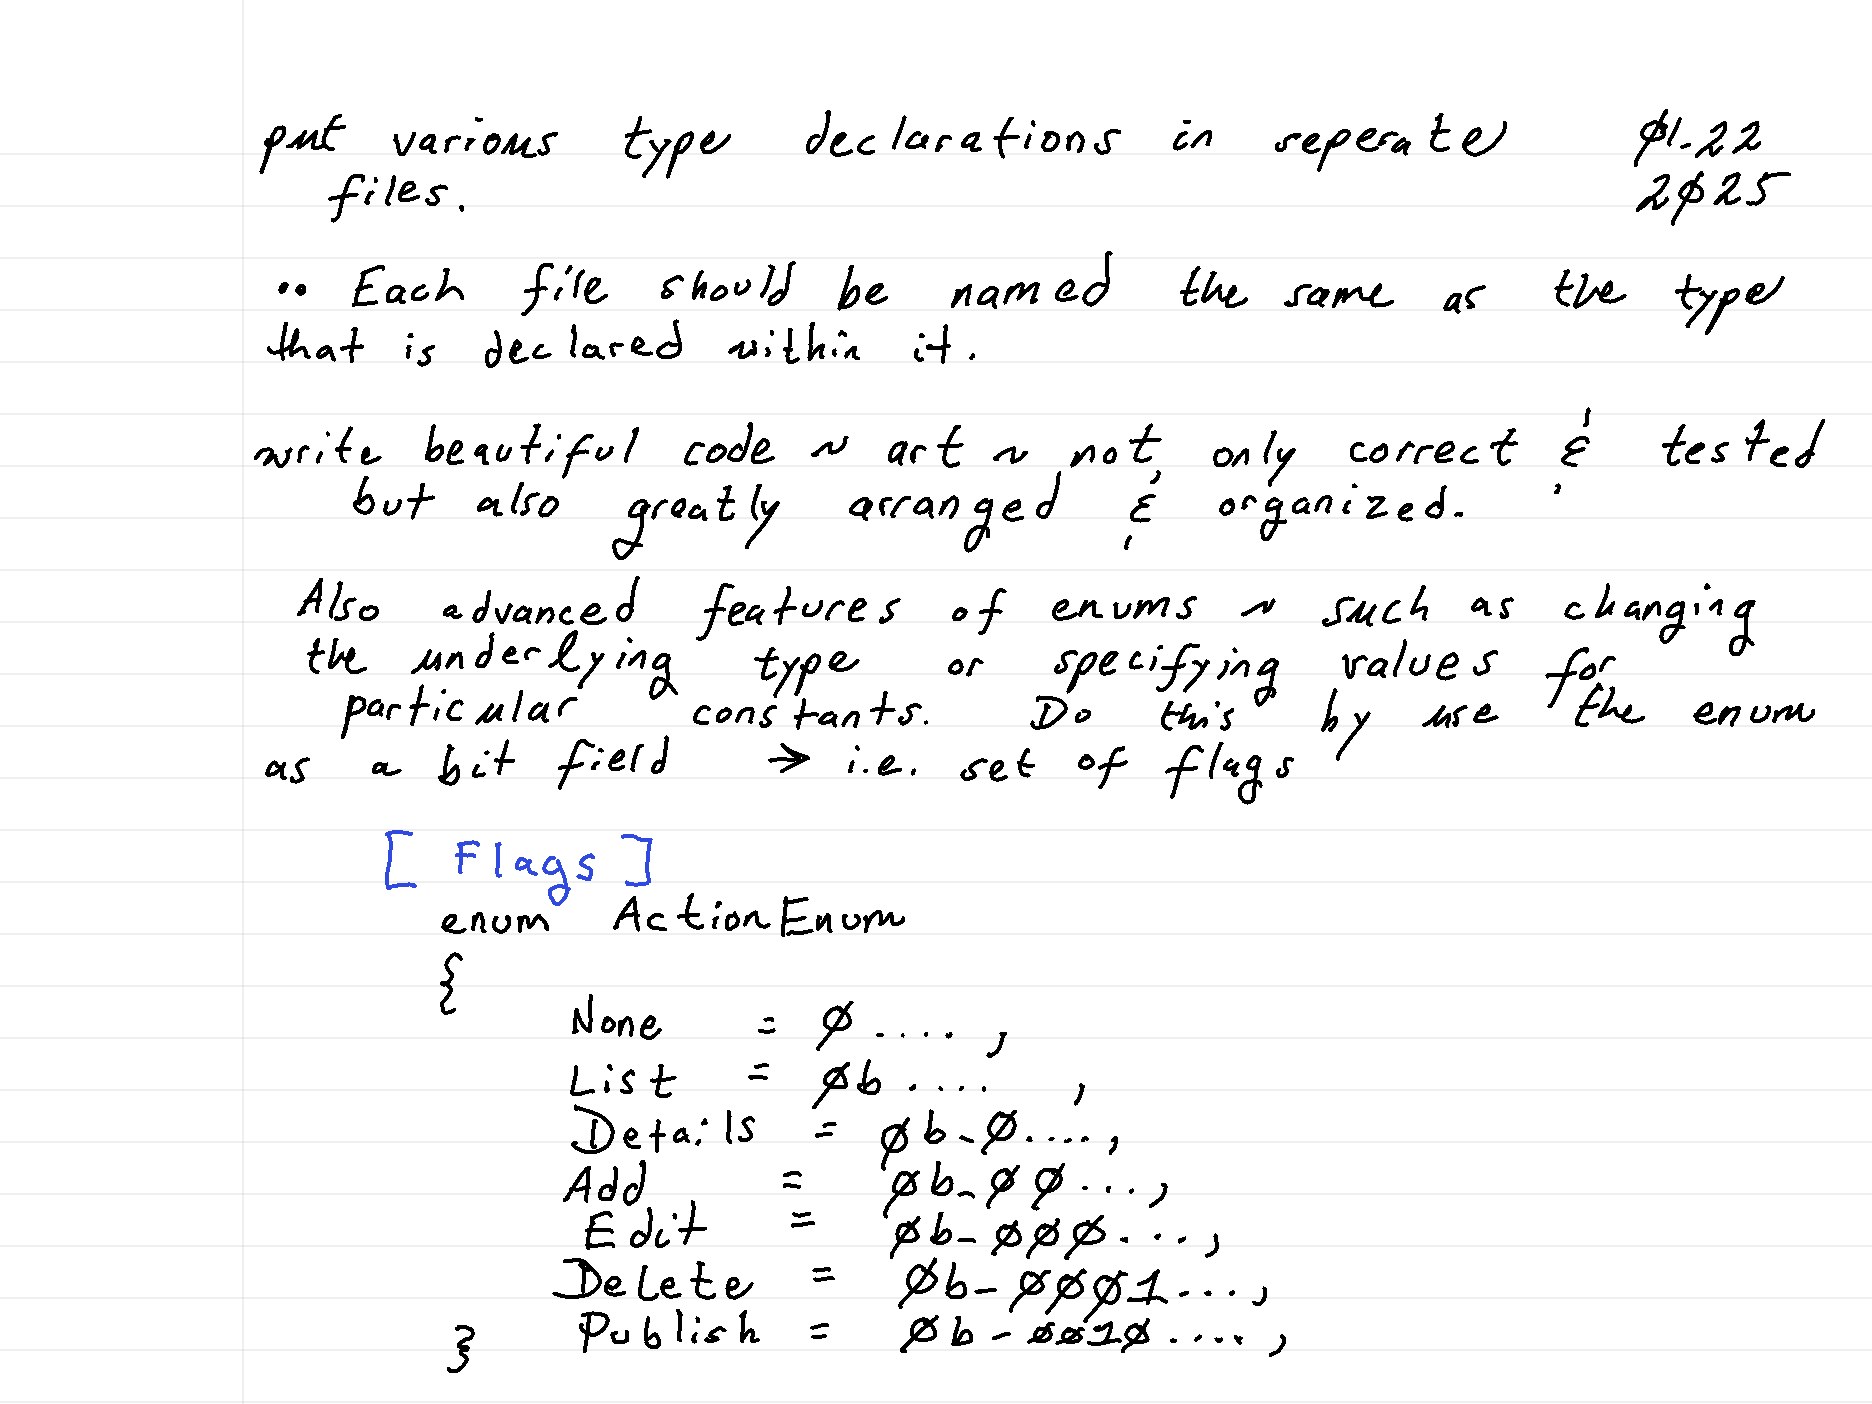 put various type declarations in seperate Ø1-22
files. 2Ø25
•• Each file should be named the same as the type
that is declared within it.
write beautiful code ~ art ~ not only correct & tested
but also greatly arranged & organized.
Also advanced features of enums ~ such as changing
the underlying type or specifying values for
particular constants. Do this by use the enum
as a bit field → i.e. set of flags
[ Flags ]
enum ActionEnum
{
None = Ø .... ,
List = Øb .... ,
Details = Øb_Ø....,
Add = Øb_ØØ...,
Edit = Øb_ØØØ...,
Delete = Øb_ØØØ1...,
Publish = Øb_ØØ1Ø....,
}